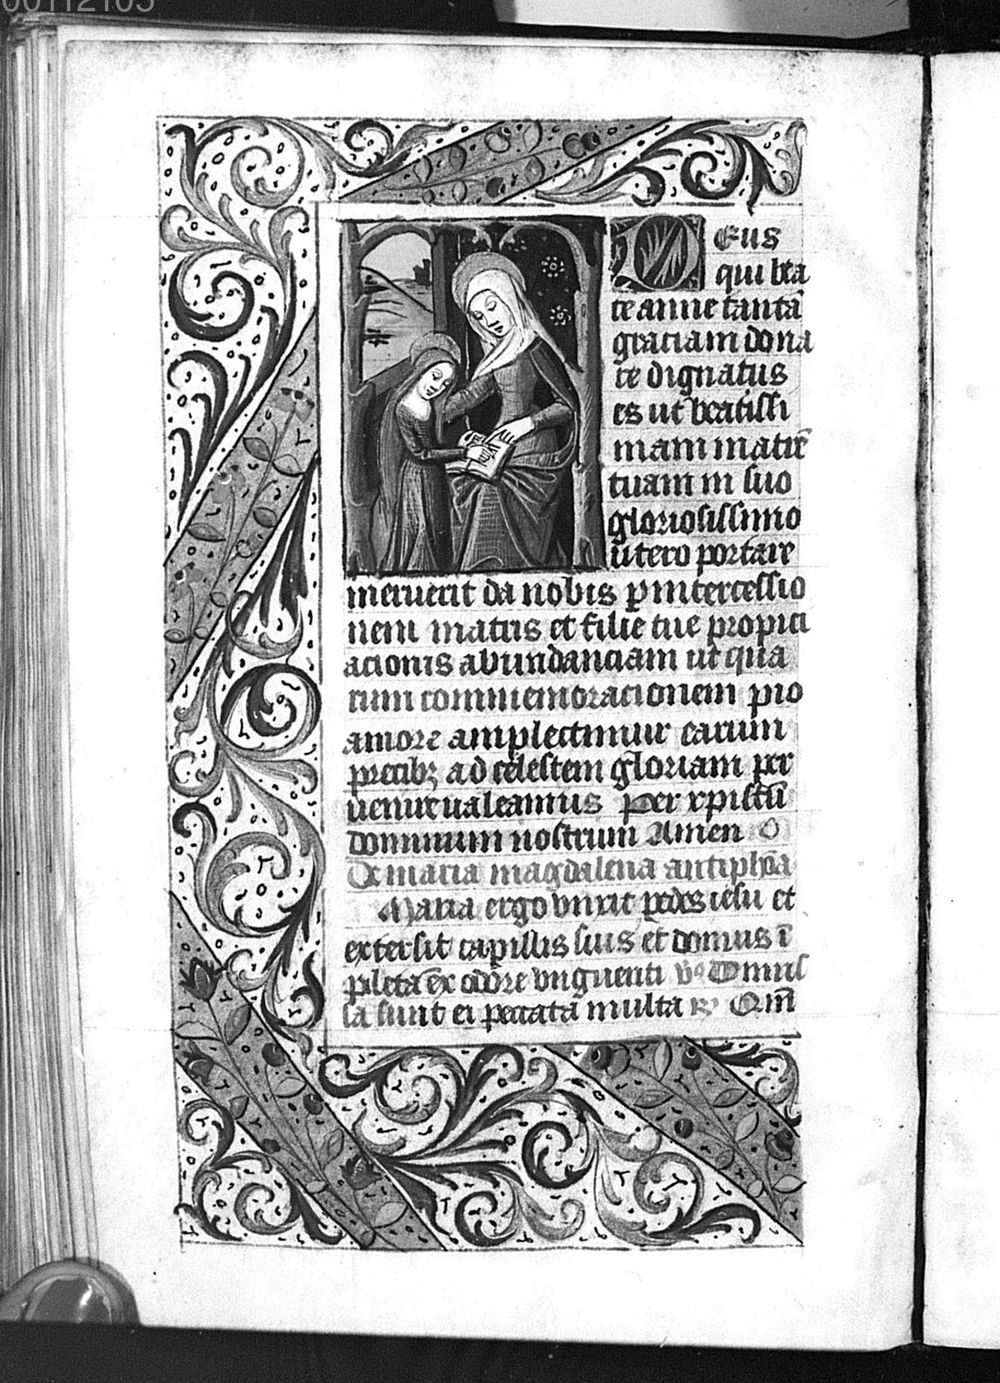 00112105
Deus
qui bea
te anne tantā
graciam dona
re dignatus
es ut beatissi
mam matrē
tuam in suo
gloriosissimo
utero portare
meruerit da nobis ꝑ intercessio
nem matris et filie tue propici
acionis abundanciam ut qua
rum commemoracionem pio
amore amplectimur earum
precibꝫ ad celestem gloriam per
uenire ualeamus Per xp̄istū
dominum nostrum Amen
De maria magdalena antiphōa
Maria ergo vnxit pedes iesu et
extersit capillis suis et domus ī
pleta ex odore vnguenti ℣ Dimis
sa sunt ei peccata multa ℟ Qm̄